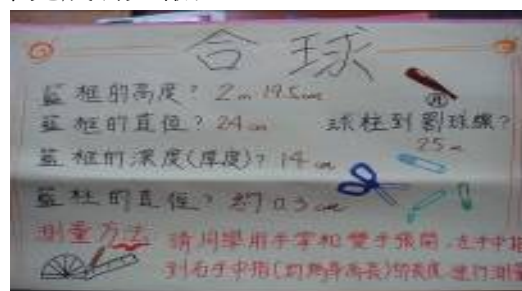 合球
籃框的高度？2m 19.5cm
籃框的直徑？24cm
球柱到罰球線？
25m
籃框的深度(厚度)？14cm
籃柱的直徑？約0.3cm
測量方法
請用學用手掌和雙手張開,左手中指
到右手中指(約為身高長)的長度,進行測量